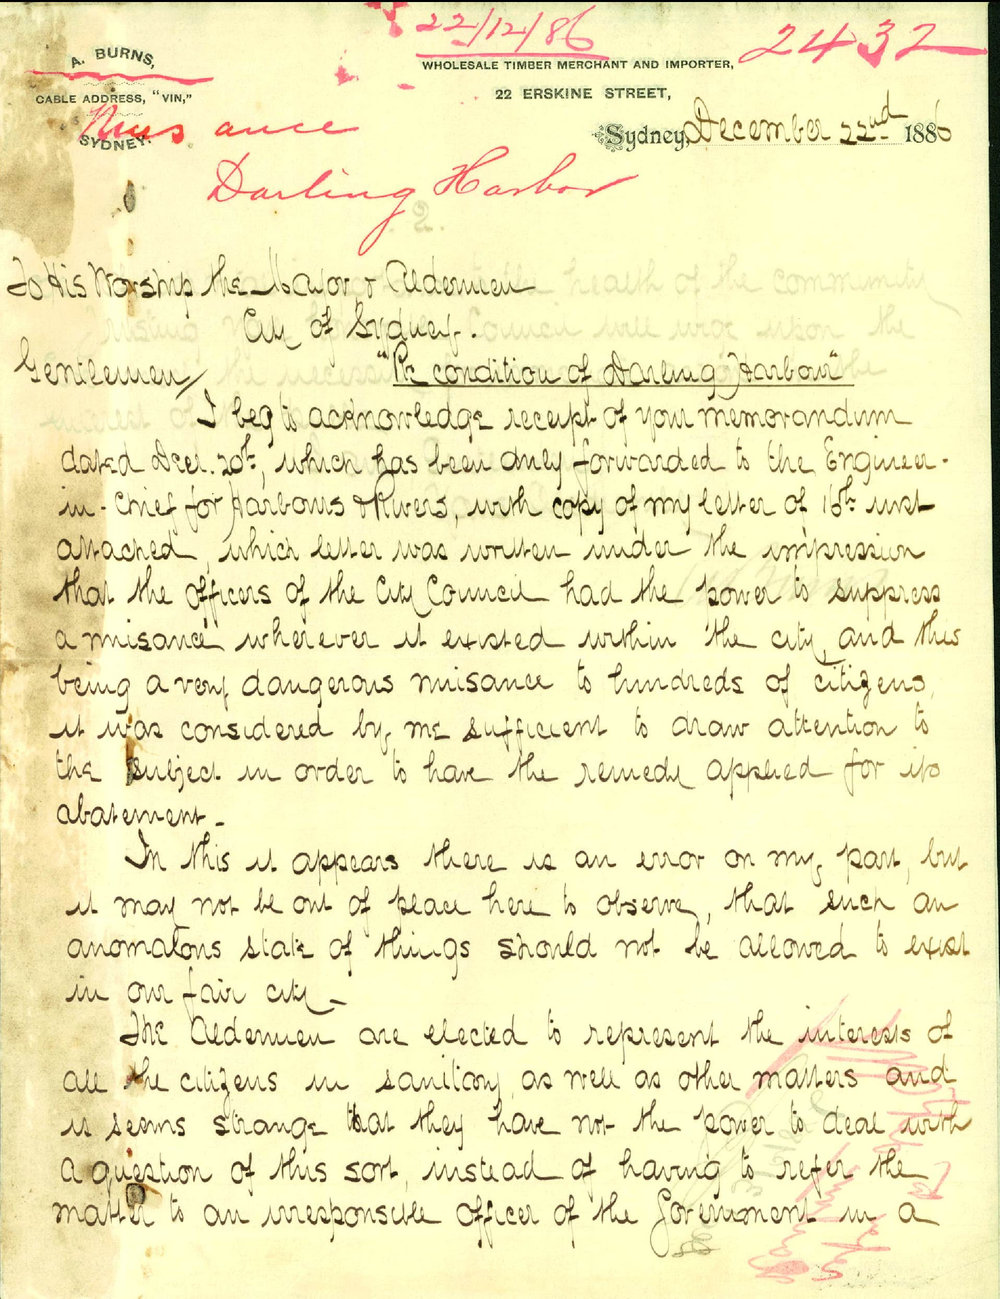 22/12/86
2432
A. BURNS,
WHOLESALE TIMBER MERCHANT AND IMPORTER,
CABLE ADDRESS, "VIN,"
22 ERSKINE STREET,
SYDNEY.
Nuisance
Sydney, December 22nd 1886
Darling Harbor
2.
To His Worship the Mayor & Aldermen
City of Sydney.
Gentlemen/ "Re condition of Darling Harbour"
I beg to acknowledge receipt of your memorandum
dated Decr. 20th, which has been duly forwarded to the Engineer-
in-Chief for Harbours & Rivers, with copy of my letter of 16th inst
attached, which letter was written under the impression
that the officers of the City Council had the power to suppress
a nuisance wherever it existed within the city, and this
being a very dangerous nuisance to hundreds of citizens,
it was considered by me sufficient to draw attention to
the subject in order to have the remedy applied for its
abatement.-
In this it appears there is an error on my part, but
it may not be out of place here to observe, that such an
anomalous state of things should not be allowed to exist
in our fair city.-
The Aldermen are elected to represent the interests of
all the citizens in sanitory as well as other matters and
it seems strange that they have not the power to deal with
a question of this sort, instead of having to refer the
matter to an irresponsible officer of the Government in a